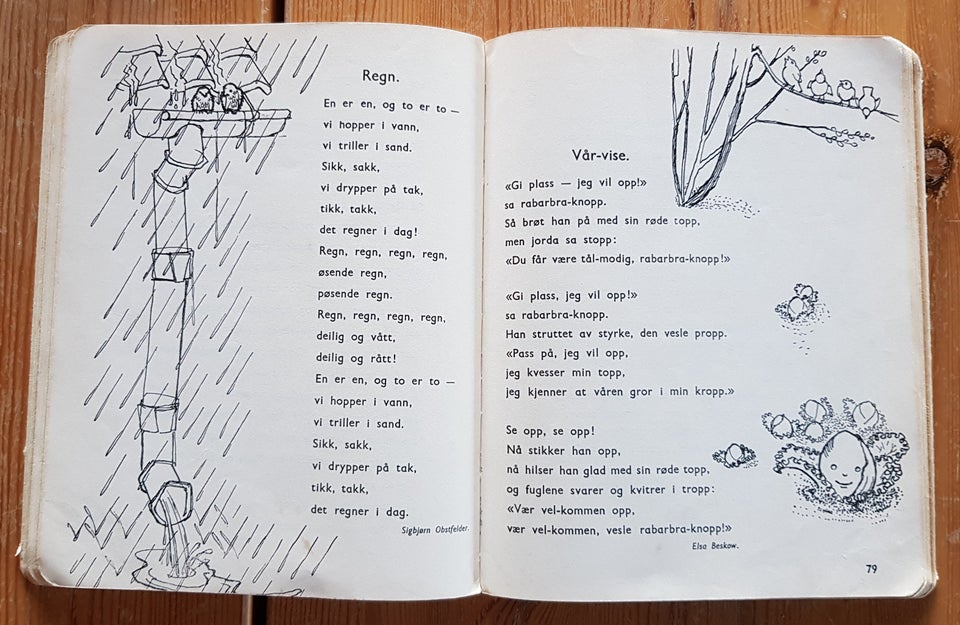 Regn.
En er en, og to er to —
vi hopper i vann,
vi triller i sand.
Sikk, sakk,
vi drypper på tak,
tikk, takk,
det regner i dag!
Regn, regn, regn, regn,
øsende regn,
pøsende regn.
Regn, regn, regn, regn,
deilig og vått,
deilig og rått!
En er en, og to er to —
vi hopper i vann,
vi triller i sand.
Sikk, sakk,
vi drypper på tak,
tikk, takk,
det regner i dag.
Sigbjørn Obstfelder.
Vår-vise.
«Gi plass — jeg vil opp!»
sa rabarbra-knopp.
Så brøt han på med sin røde topp,
men jorda sa stopp:
«Du får være tål-modig, rabarbra-knopp!»
«Gi plass, jeg vil opp!»
sa rabarbra-knopp.
Han struttet av styrke, den vesle propp.
«Pass på, jeg vil opp,
jeg kvesser min topp,
jeg kjenner at våren gror i min kropp.»
Se opp, se opp!
Nå stikker han opp,
nå hilser han glad med sin røde topp,
og fuglene svarer og kvitrer i tropp:
«Vær vel-kommen opp,
vær vel-kommen, vesle rabarbra-knopp!»
Elsa Beskow.
79